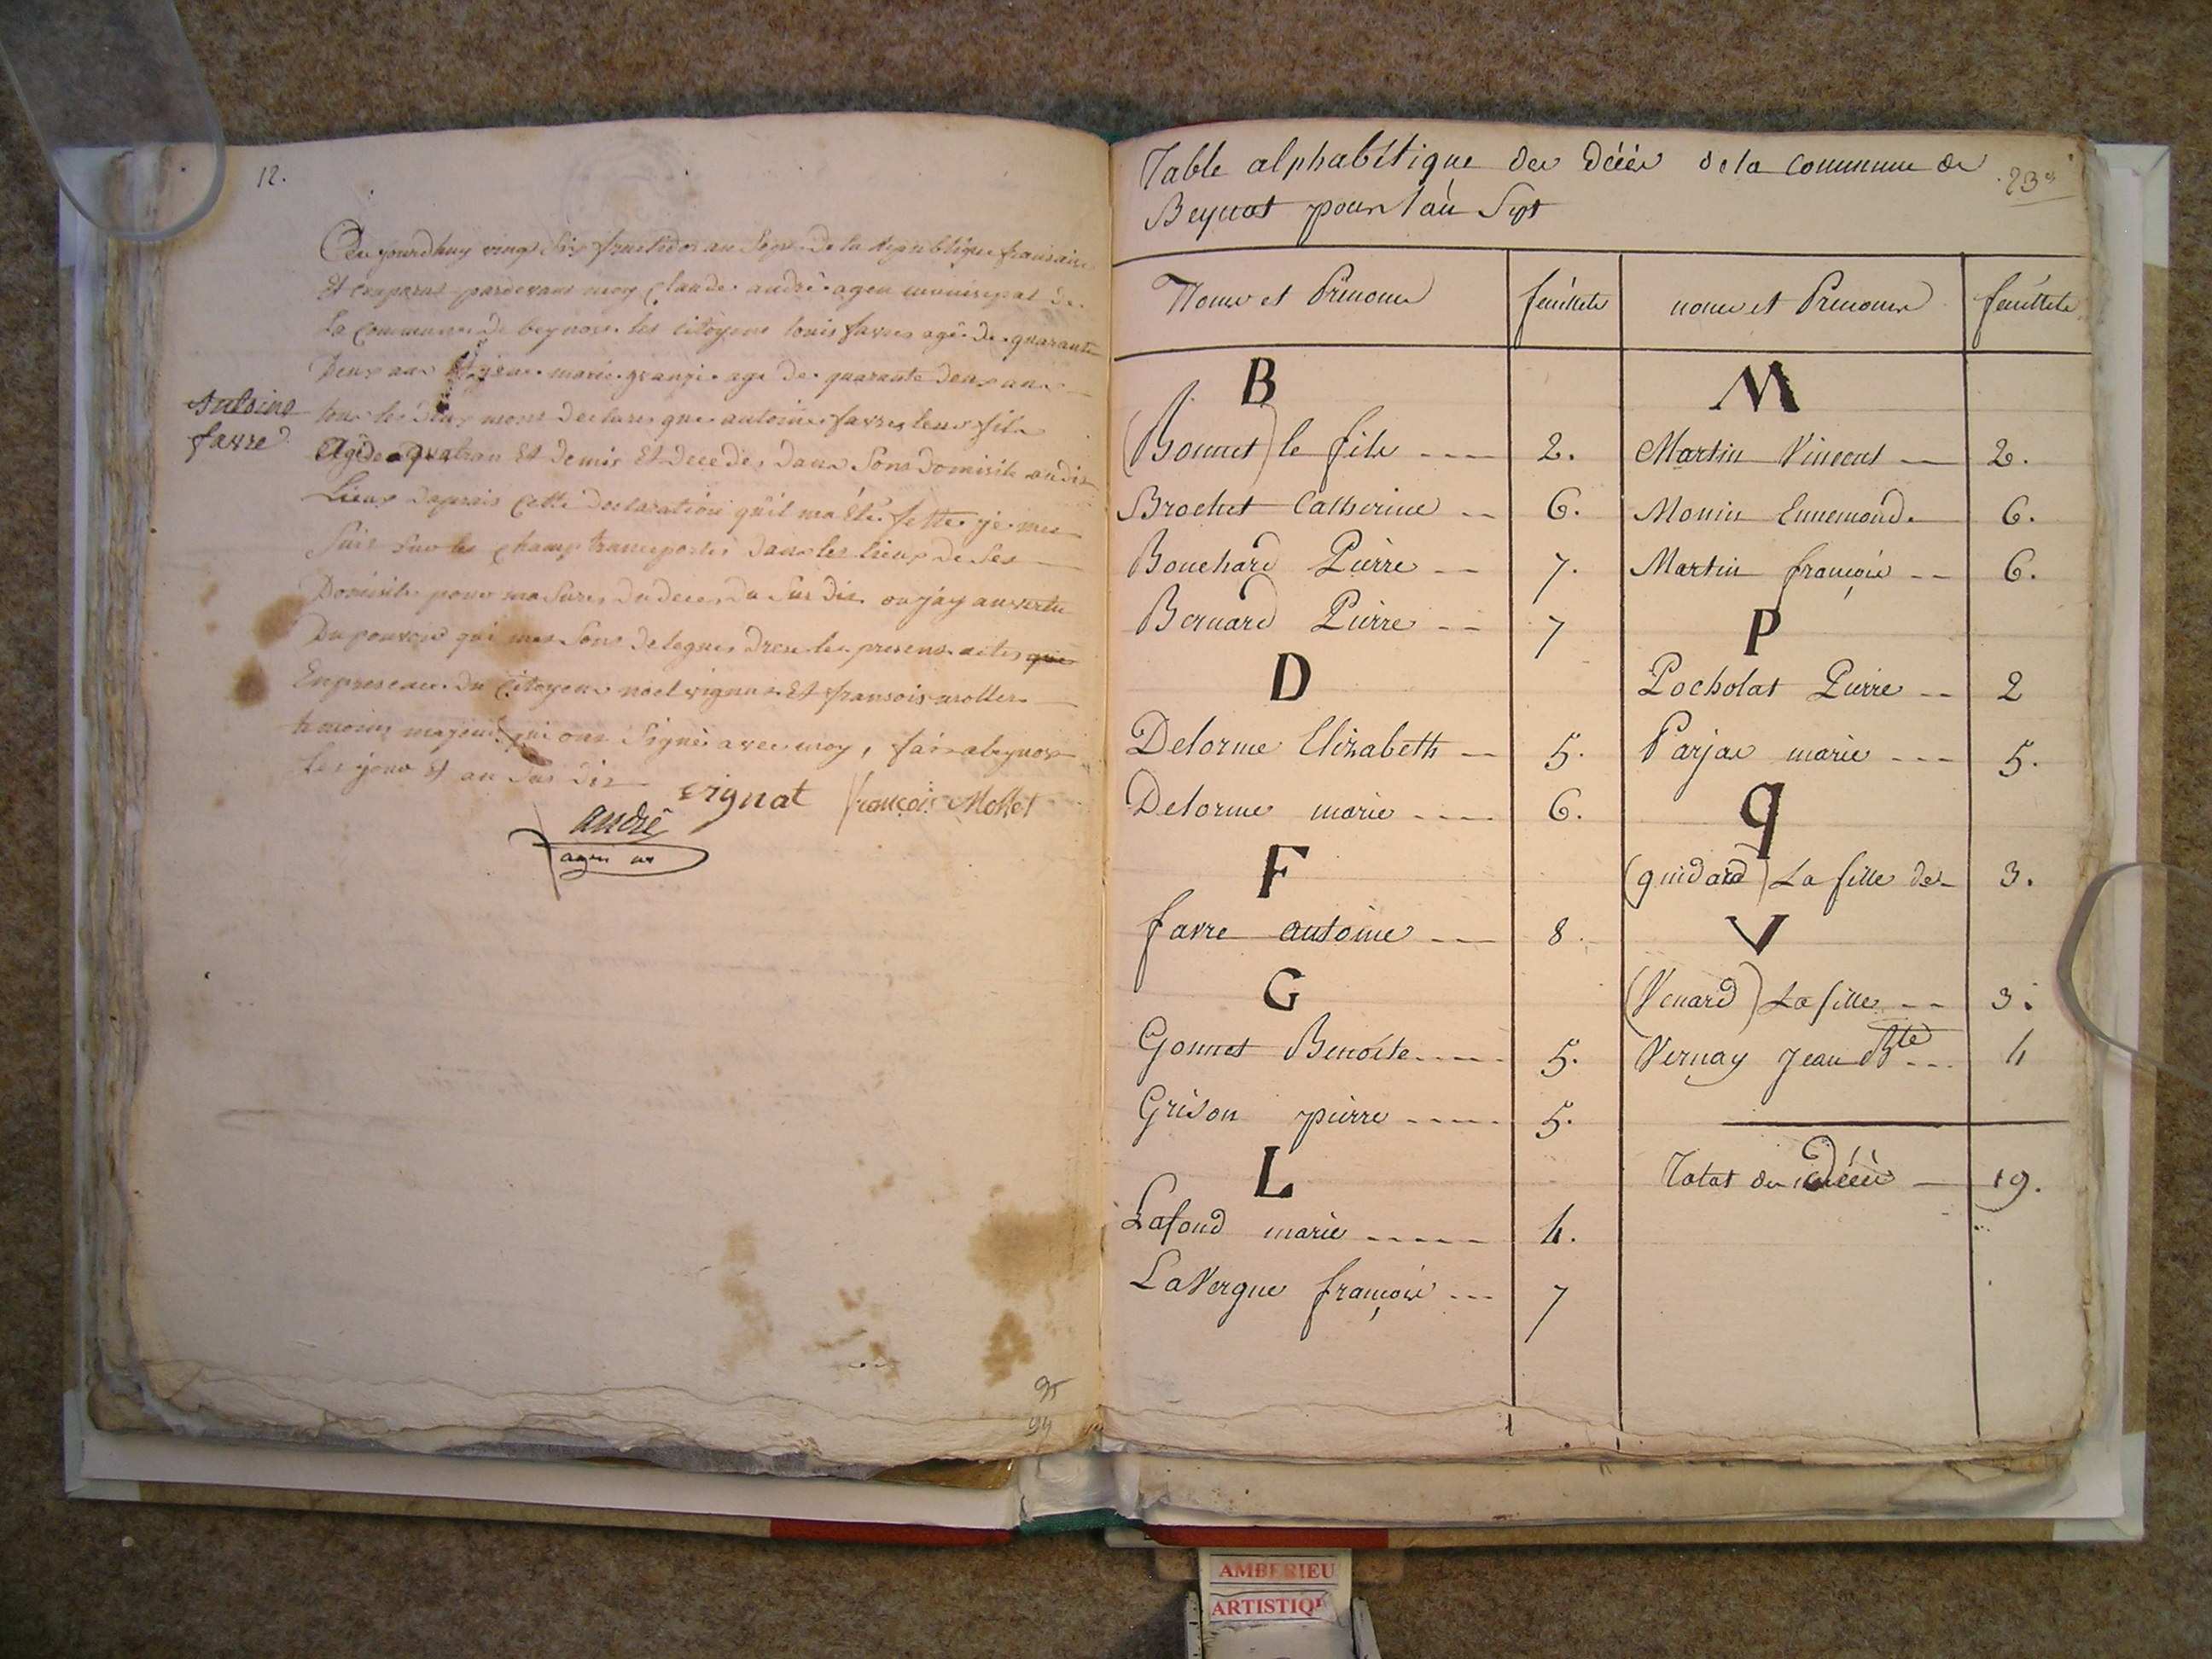 12.
Cejourdhuy vingt six fructidor an sept de la Republique fransaise
Et comparut pardevant moy Claude andrè agen municipal de
La Commune de beynost les citoyens louis favre agé de quarante
Deux ans Et marie grangé age de quarante deux ans
tous les deux mont declares que antoine favre leur fils
Agé de quatran Et demis Et decedé dans Son domisile audit
Lieux daprais Cette declaration qu'il ma été fette je me
Suis sur les champ transportés dans les lieux de Ses
Domisile pour masurer du deces du Susdit ou j'ay an vertu
Du pouvoir qui me Sont delegues dresé le present actes que
En presence du Citoyens noel vignat Et fransois mollet
temoins majeurs qui ont Signé avec moy, fait a beynost
Les jour Et an Sus dit
antoine
favre
vignat françois Mollet
andrè
agen m
95
94
Table alphabétique des décès de la commune de
Beynost pour l'an Sept
23
Noms et Prénoms feuillets noms et Prénoms feuillets
B M
(Bonnet) le fils ---- 2. Martin Vincent -- 2.
Brochet Catherine -- 6. Monin Ennemond. 6.
Bouchard Pierre -- 7. Martin françois -- 6.
Bernard Pierre -- 7 P
D Pocholat Pierre -- 2
Delorme Elizabeth -- 5. Parjas marie --- 5.
Delorme marie ---- 6. q
F (quidard) La fille de 3.
favre antoine --- 8. V
G (Venard) La fille -- 3.
Gonnet Benoite ---- 5. Vernay Jean Bte --- 4
Grison pierre ---- 5.
L Total des décès -- 19.
Lafond marie ----- 4.
LaVergne françois --- 7
AMBERIEU
ARTISTIQ